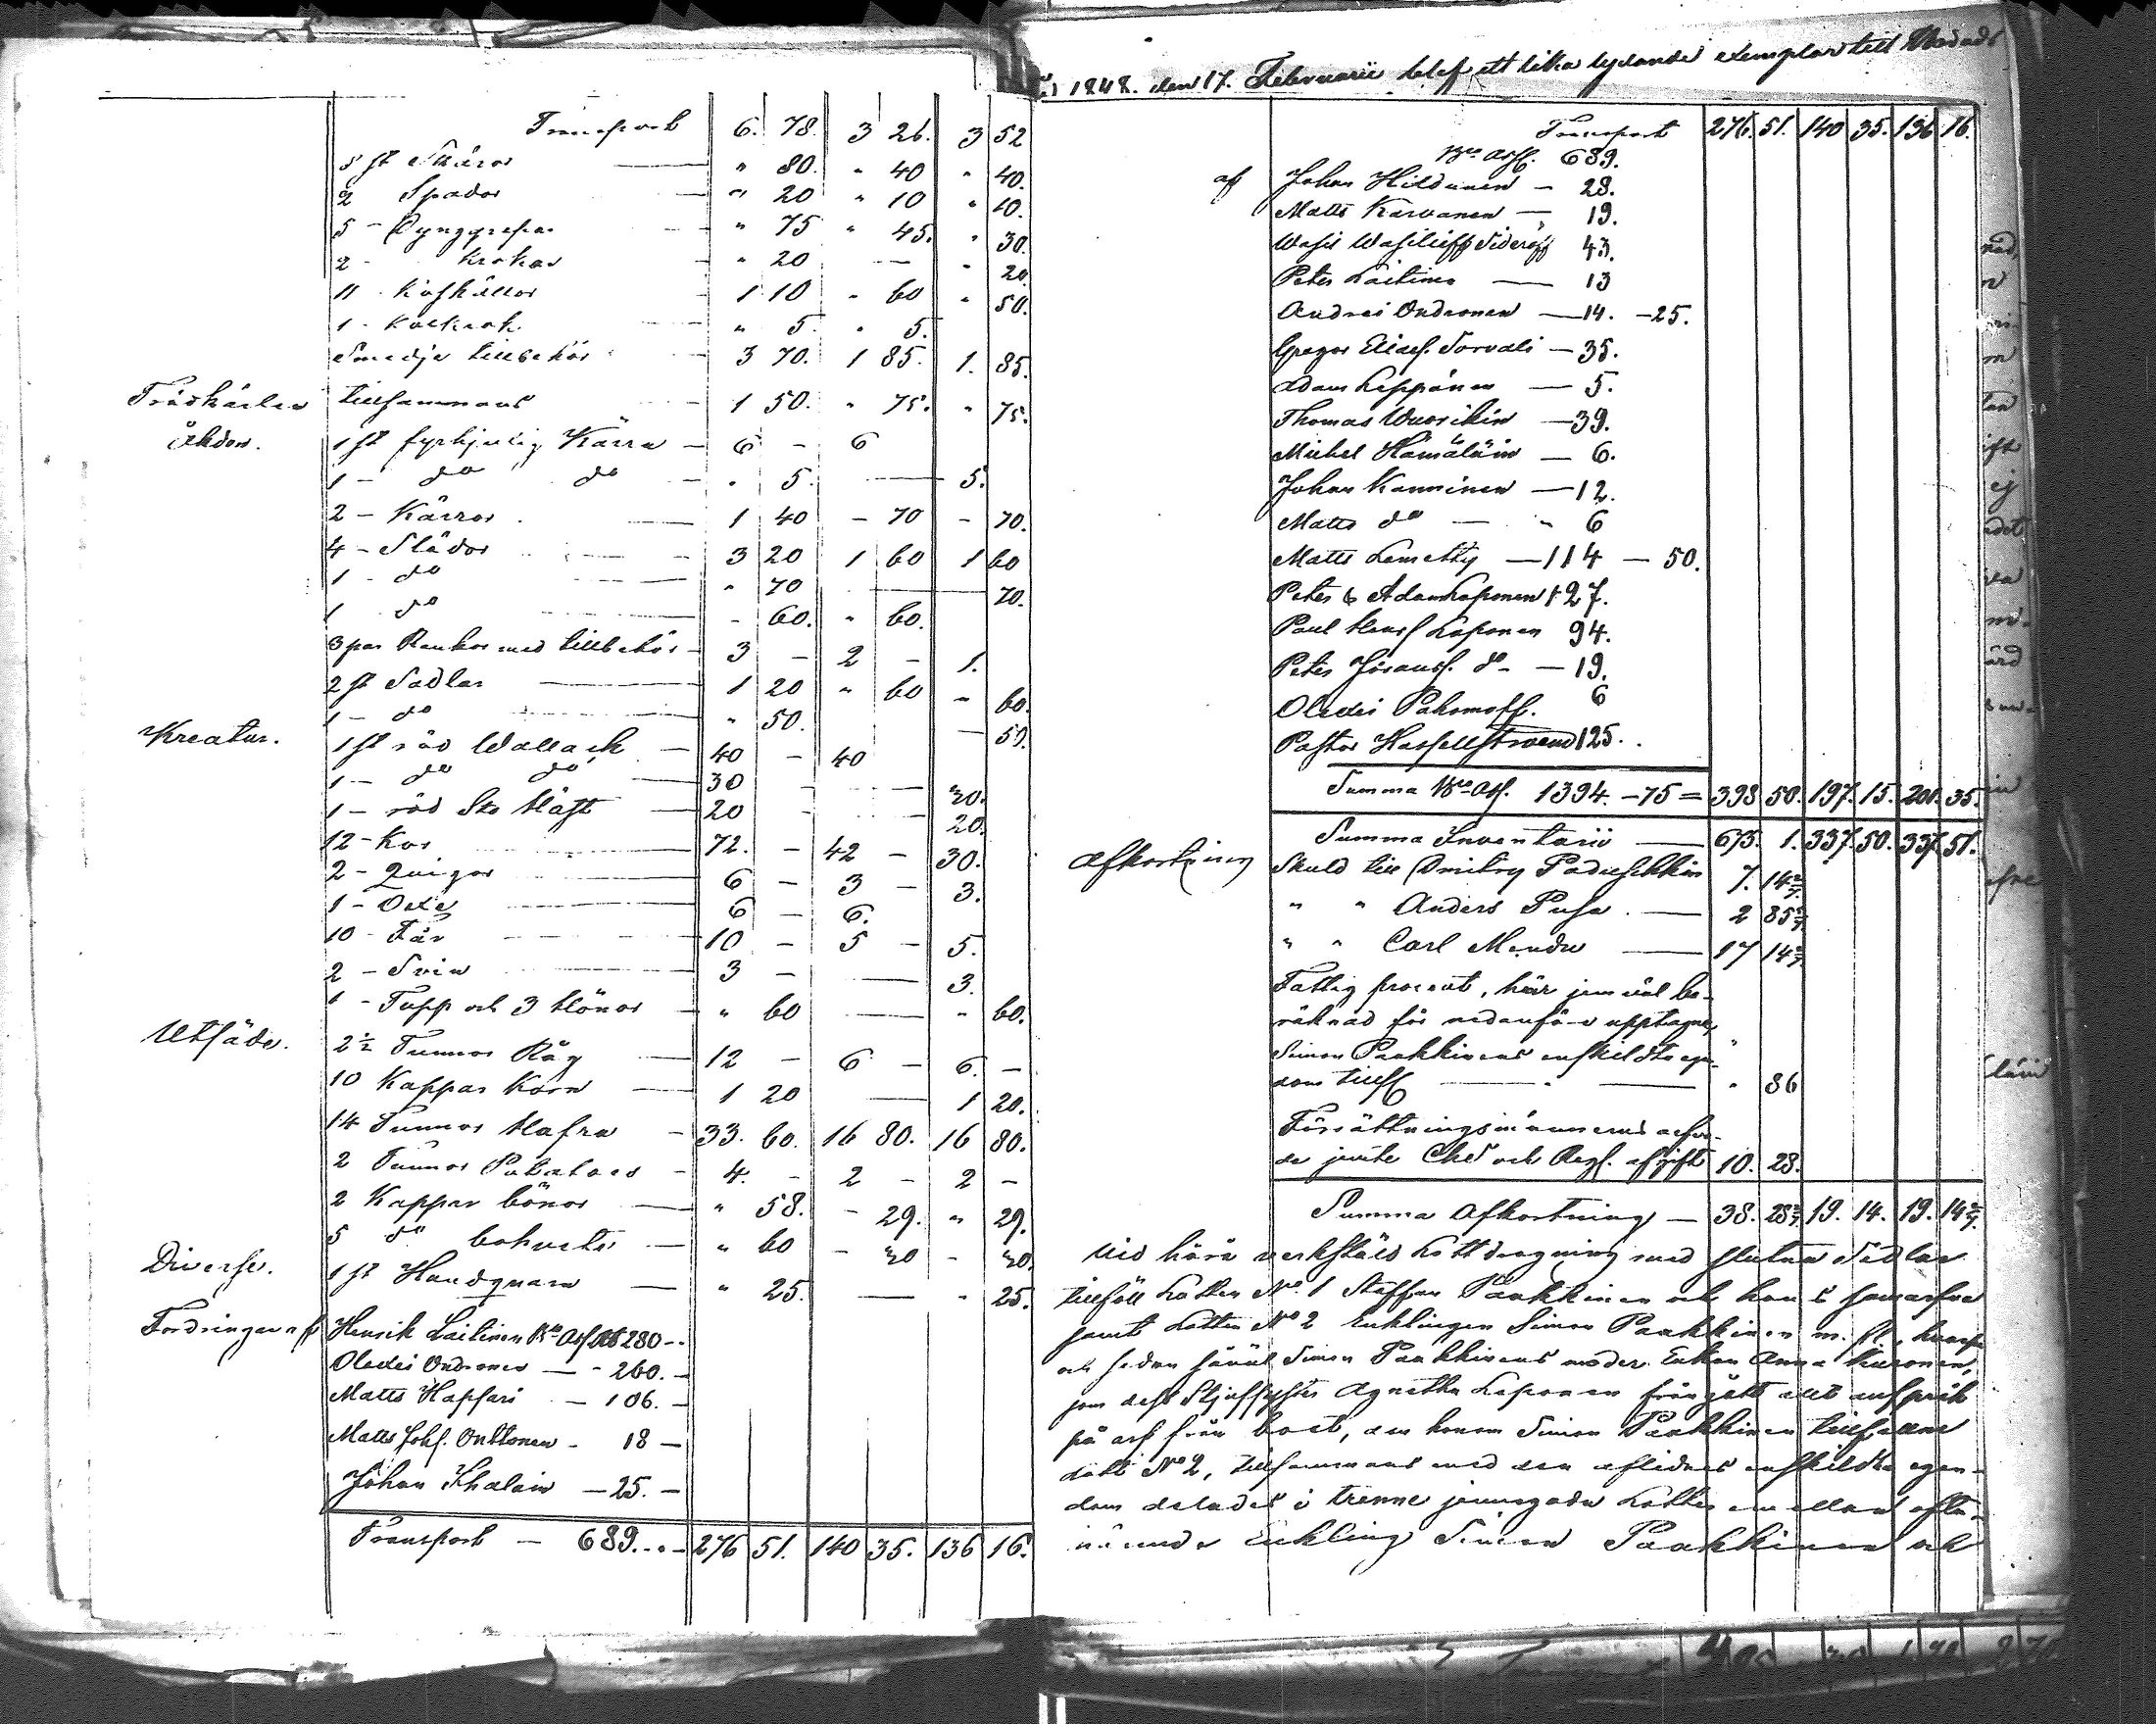 Transport 6. 78. 3 26. 3 52
5 st Skäror " 80. " 40 " 40.
2 Spador " 20 " 10 " 10.
5 - Dynggrepar " 75 " 45. " 30.
2 - Krokar " 20 — " 20
11 - 1 10 " 60 " 50.
1 - " 5. " 5.
Smedje tillbehör 3 70. 1 85. 1. 85.
Trädkärlen tillsammans 1 50. " 75. " 75.
Åkdon. 1 st fyrhjulig Kärra — 6 - 6
1 - do do - " 5. — 5.
2 - Kärror 1 40 - 70 - 70.
4 - Slädor 3 20 1 60 1 60
1 - do " 70 — 70.
1 do - 60. " 60.
3 par Rankor med tillbehör - 3 - 2 - 1.
2 st Sadlar 1 20 " 60 " 60.
1 - do " 50. — 50.
Kreatur. 1 st röd Wallack — 40 - 40
1 - do do 30 - — 30.
1 - röd Sto Häst 20 - — 20.
12 - Kor 72. - 42 - 30.
2 - Quigor 6 - 3 - 3.
1 - Oxe 6 - 6.
10 - Får 10 - 5 - 5.
2 - Svin 3 - — 3.
1 - Tupp och 3 Hönor " 60 — " 60.
Utsäde. 2½ Tunnor Råg 12 - 6 - 6. -
10 Kappar Korn 1 20 — 1 20.
14 Tunnor Hafra - 33. 60. 16 80. 16 80.
2 Tunnor Potatoes - 4. - 2 - 2 -
2 Kappar bönor " 58. - 29. " 29.
5 do bohvete " 60 - 30 - 30.
Diverse. 1 st Handqvarn " 25. — " 25.
Fordringar af Henrik Laitinen Bco Ass. 280 -
Olexei Ondronen — " 260. -
Matts Hapsari - 106. -
Matts Johs. Onttonen - 18 —
Johan Ihalain — 25. —
Transport — 689. - 276 51. 140 35. 136 16.
1848. den 17. Februarii blef ett lika lydande exemplar till
Transport 276. 51. 140 35. 136 16.
Bco Ass. 689.
af Johan Hildunen — 28.
Matts Karvanen — 19.
Wasil Wasilieff Sideroff 43.
Peter Laitinen — 13
Andrei Ondronen — 14. - 25.
Gregor Eliaes. Torvali — 35.
Adam Leppänen — 5.
Thomas Wuorikin — 39.
Michel Hämäläin — 6.
Johan Kanninen — 12.
Matts do — " 6
Matts Lemetty — 114 — 50.
Peter & Adam Kaponen 127.
Paul Henrs. Laponen 94.
Peter Jöranss. do - — 19.
Olexei Pahomoff. 6
Pastor Hasselstroem 125.
Summa Bco Ass. 1394. - 75 = 398 50. 197. 15. 201. 35.
Summa Inventarii — 675. 1. 337. 50. 337. 51.
Afkortning Skuld till Dmitry Paduschkin 7. 14 2/7.
" " Anders Pusa — 2 85 5/7
" " Carl Mendu — 17 14 2/7.
Fattig procent, här jemväl be-
räknad för nedanföre upptagne
Simon Paakkinens enskildta egen-
dom tills. — " 86
Förrättningsmännens arfvo-
de jemte Chs och Regl. afgift 10. 28.
Summa Afkortning — 38. 28 2/7. 19. 14. 19. 14 2/7.
Vid härå verkstäld Lottdragning med slutna Sedlar
tillföll Lotten No. 1 Staffan Paakkinen och hans samarfva
samt Lotten No 2 Enklingen Simon Paakkinen m. fl., hvarpå
och sedan såväl Simon Paakkinens moder Enkan Anna Kuronen,
som dess Styfsyster Agnetha Laponen frångått allt anspråk
på arf från boet, den honom Simon Paakkinen tillfallne
Lott No 2, tillsammans med den aflidnes enskildta egen-
dom delades i trenne jemngoda Lotter emellan ofta-
nämnde Enkling Simon Paakkinen och